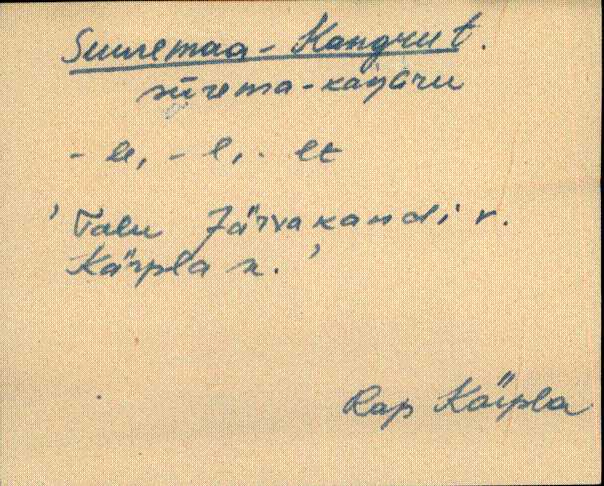 Suuremaa-Kangru t.
sūrema-kaŋGru
- le, - l, - lt
'Talu Järvakandi v.
Kärpla k.'
Rap Kärpla